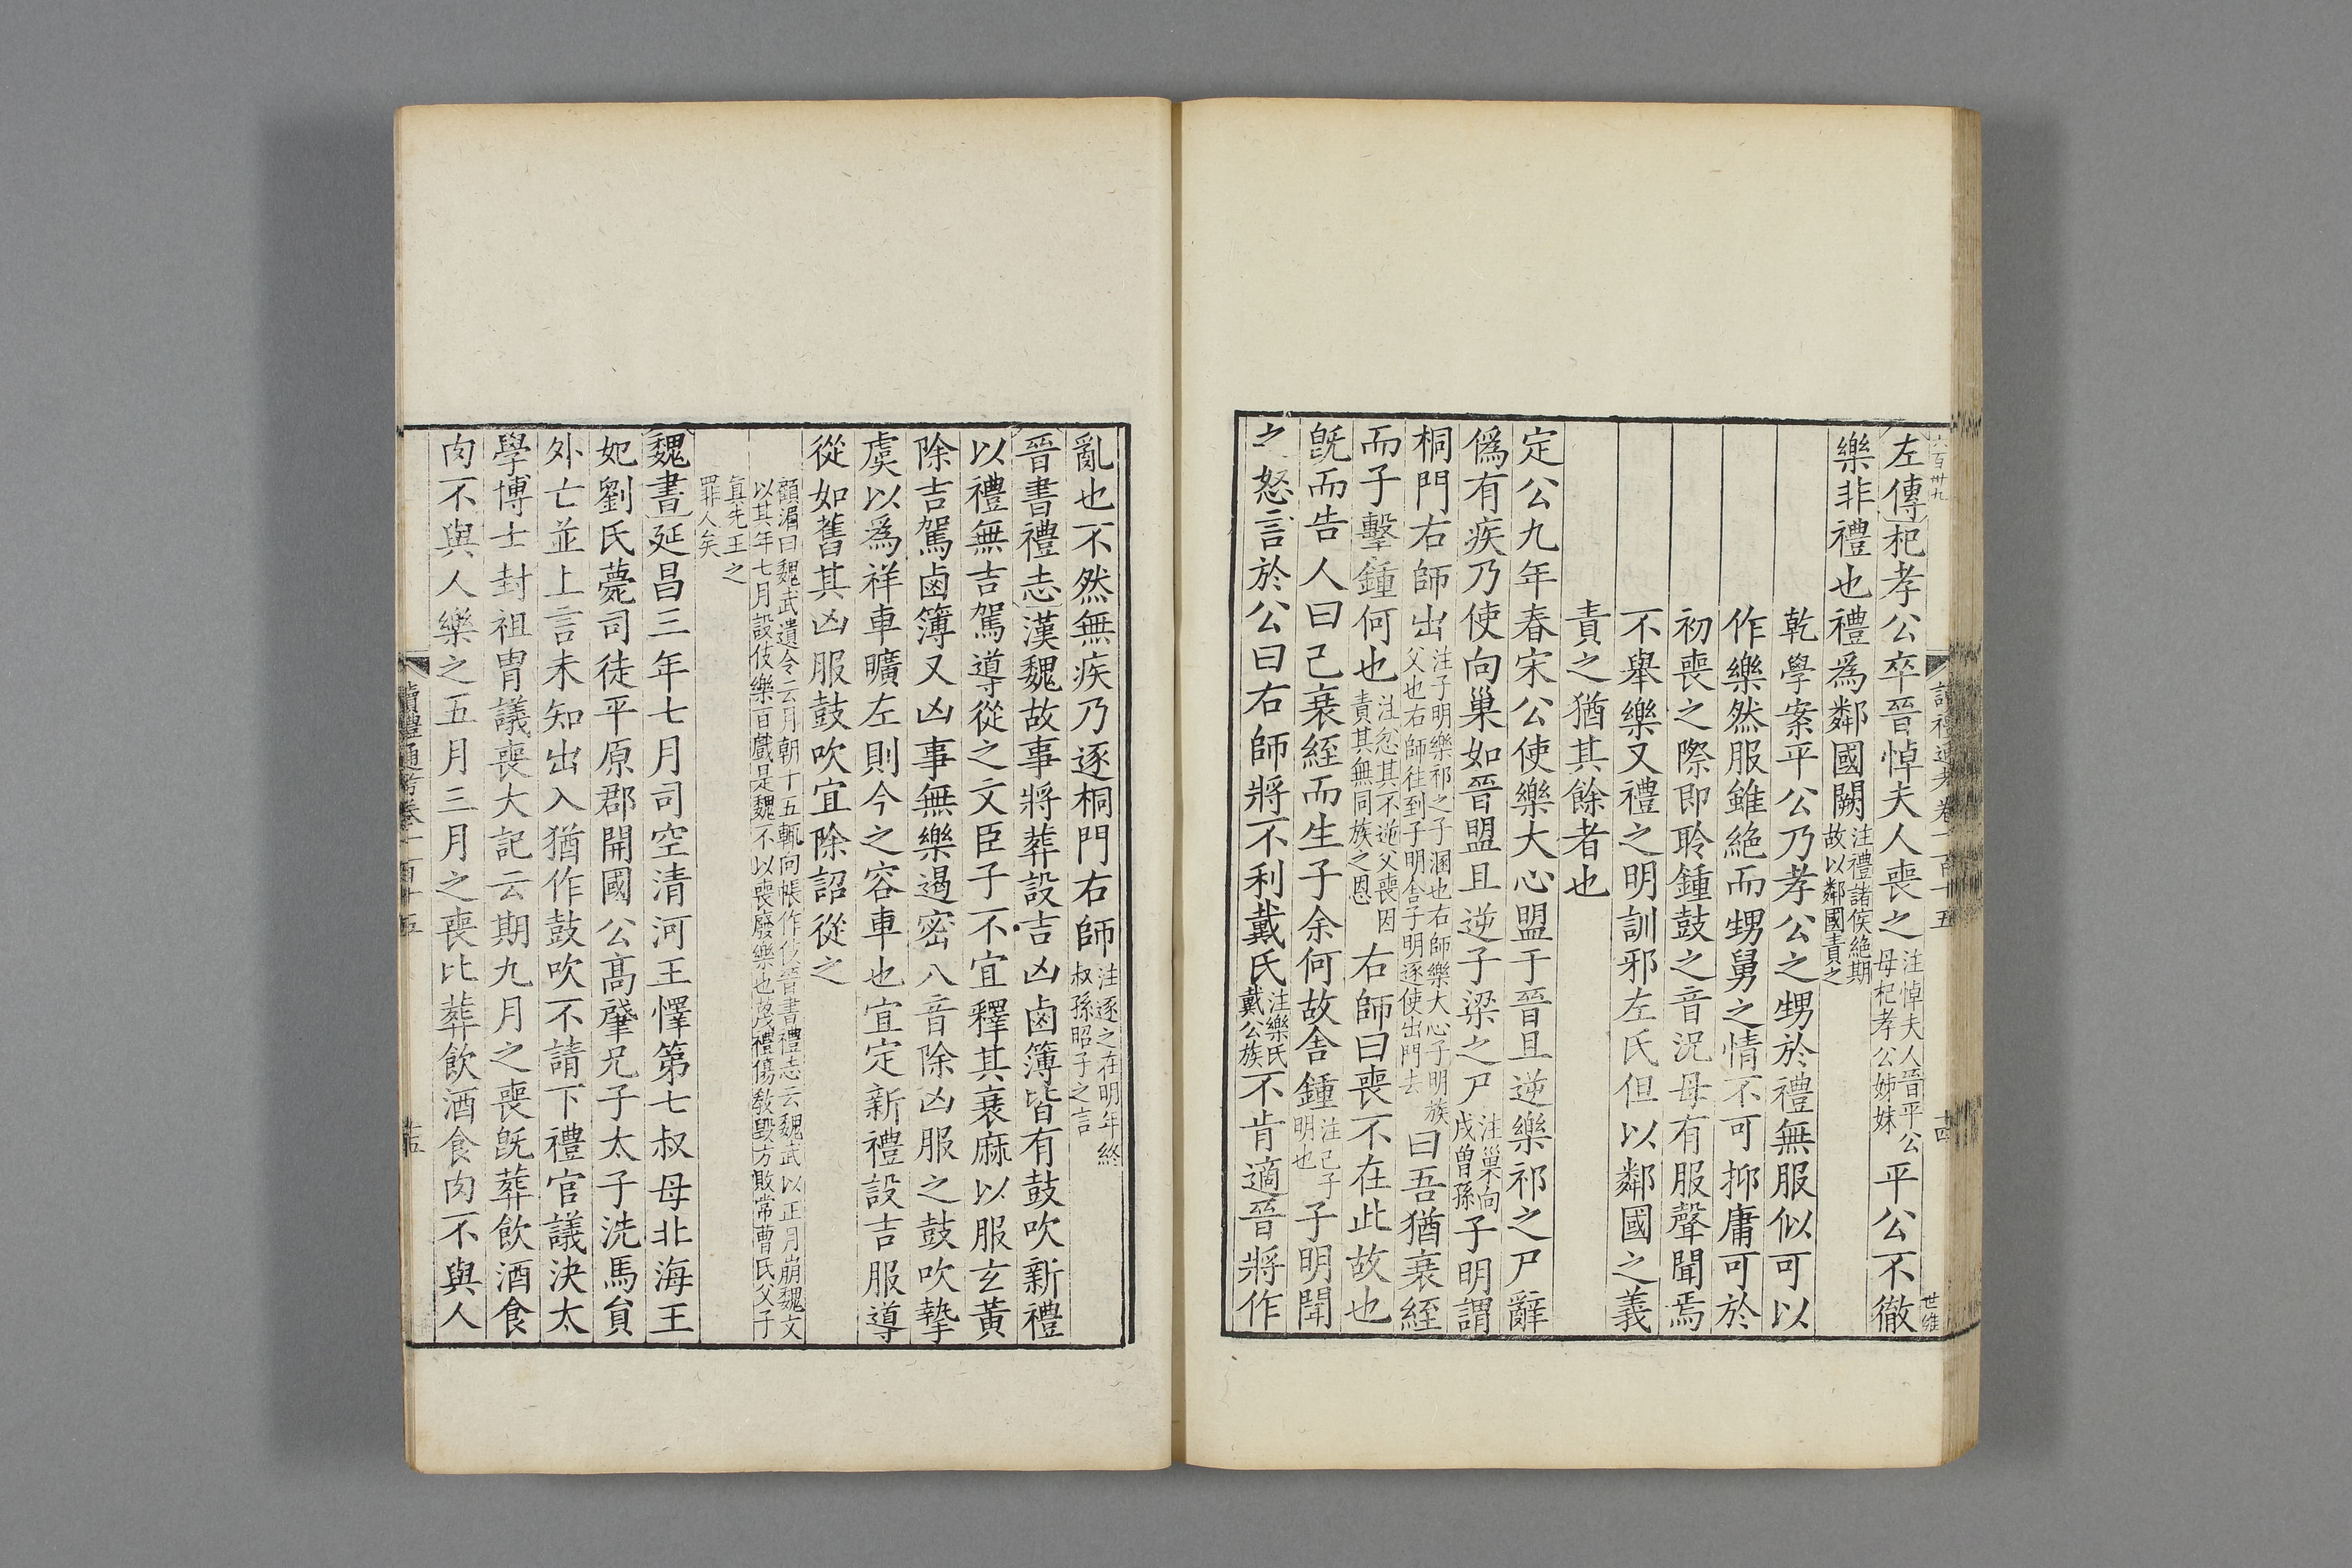 六百卅九
讀禮通考卷一百十五
十四
世維
左傳杞孝公卒晉悼夫人喪之注悼夫人晉平公母杞孝公姊妹平公不徹
樂非禮也禮爲鄰國闕注禮諸侯絶期故以鄰國責之
乾學案平公乃孝公之甥於禮無服似可以
作樂然服雖絶而甥舅之情不可抑庸可於
初喪之際即聆鍾鼓之音況母有服聲聞焉
不舉樂又禮之明訓邪左氏但以鄰國之義
責之猶其餘者也
定公九年春宋公使樂大心盟于晉且逆樂祁之尸辭
僞有疾乃使向巢如晉盟且逆子梁之尸注巢向戌曾孫子明謂
桐門右師出注子明樂祁之子溷也右師樂大心子明族父也右師往到子明舍子明逐使出門去曰吾猶衰絰
而子擊鍾何也注忿其不逆父喪因責其無同族之恩右師曰喪不在此故也
旣而告人曰己衰絰而生子余何故舍鍾注己子明也子明聞
之怒言於公曰右師將不利戴氏注樂氏戴公族不肯適晉將作
亂也不然無疾乃逐桐門右師注逐之在明年終叔孫昭子之言
晉書禮志漢魏故事將葬設吉凶鹵簿皆有鼓吹新禮
以禮無吉駕導從之文臣子不宜釋其衰麻以服玄黃
除吉駕鹵簿又凶事無樂遏密八音除凶服之鼓吹摯
虞以爲祥車曠左則今之容車也宜定新禮設吉服導
從如舊其凶服鼓吹宜除詔從之
顧湄曰魏武遺令云月朝十五輒向帳作伎晉書禮志云魏武以正月崩魏文
以其年七月設伎樂百戲是魏不以喪廢樂也蔑禮傷敎毁方敗常曹氏父子
眞先王之
罪人矣
魏書延昌三年七月司空清河王懌第七叔母北海王
妃劉氏薨司徒平原郡開國公高肇兄子太子洗馬員
外亡並上言未知出入猶作鼓吹不請下禮官議決太
學博士封祖胄議喪大記云期九月之喪旣葬飲酒食
肉不與人樂之五月三月之喪比葬飲酒食肉不與人
讀禮通考卷一百十五